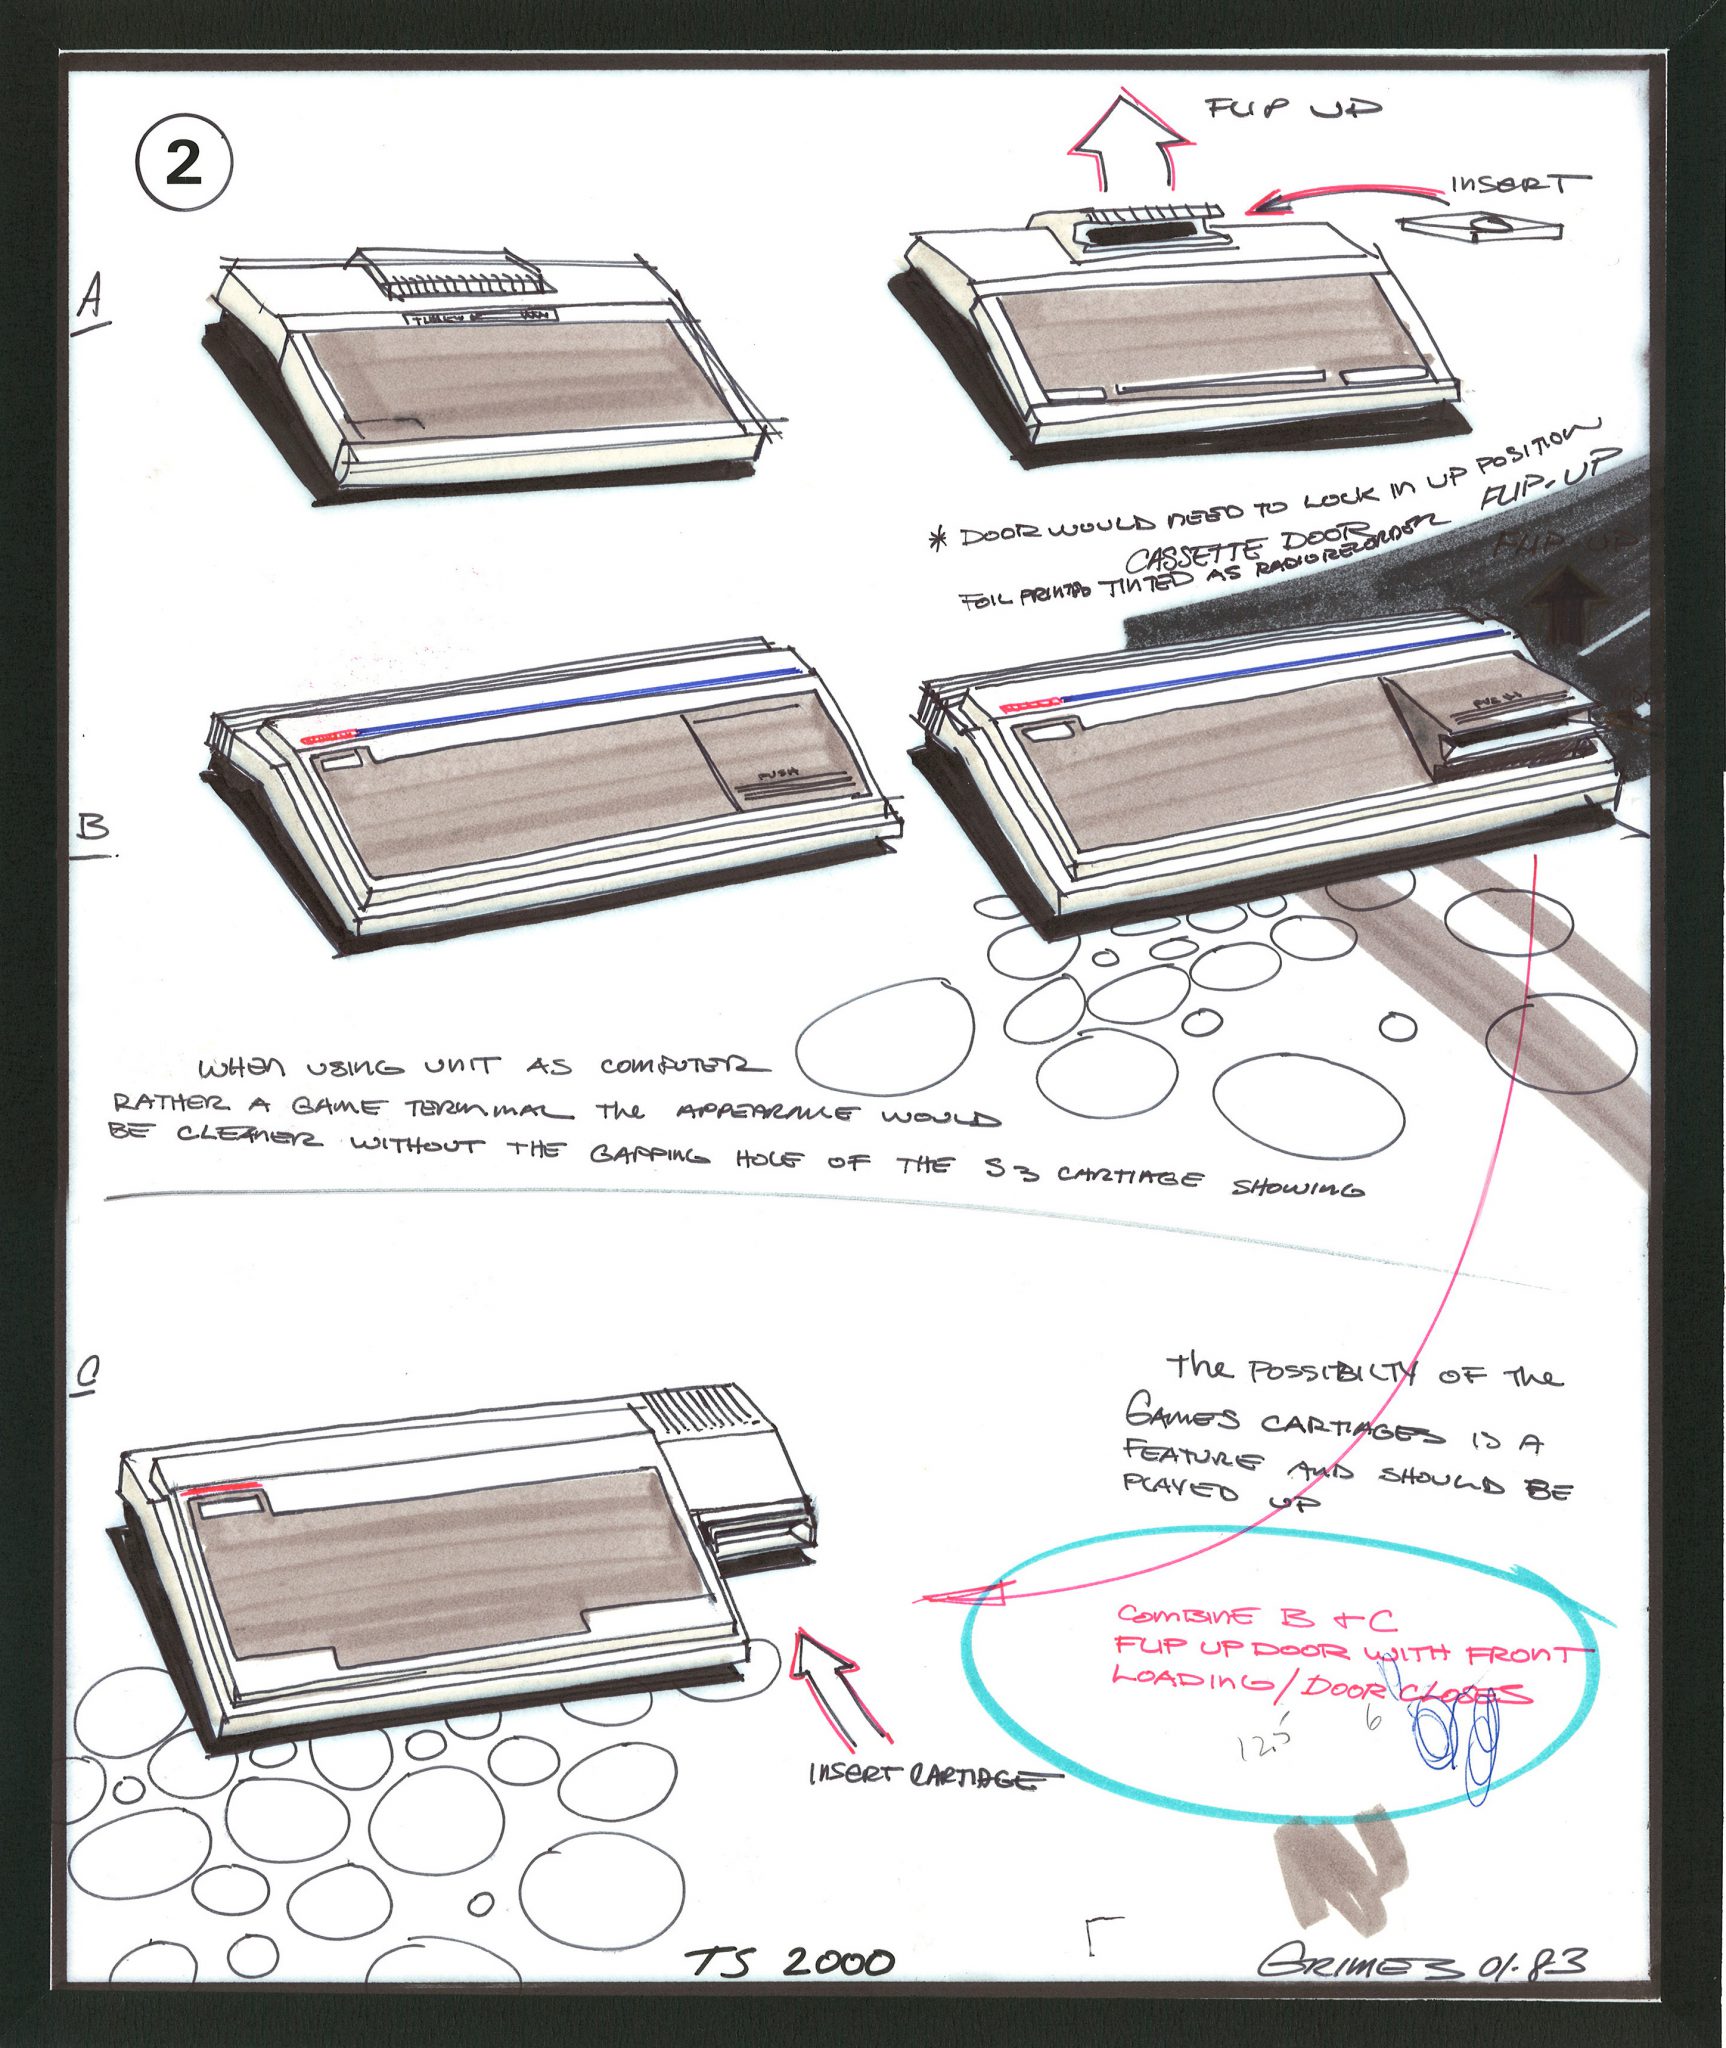 2
FLIP UP
INSERT
A
* DOOR WOULD NEED TO LOCK IN UP POSITION
CASSETTE DOOR FLIP-UP
FOIL PRINTED TINTED AS RADIO RECORDER
FLIP UP
B
PUSH
PUSH
WHEN USING UNIT AS COMPUTER
RATHER A GAME TERMINAL THE APPEARANCE WOULD
BE CLEANER WITHOUT THE GAPPING HOLE OF THE S3 CARTIAGE SHOWING
C
THE POSSIBILTY OF THE
GAMES CARTIAGES IS A
FEATURE AND SHOULD BE
PLAYED UP
COMBINE B + C
FLIP UP DOOR WITH FRONT
LOADING/DOOR CLOSES
12.5 6
INSERT CARTIAGE
TS 2000
GRIMES 01.83